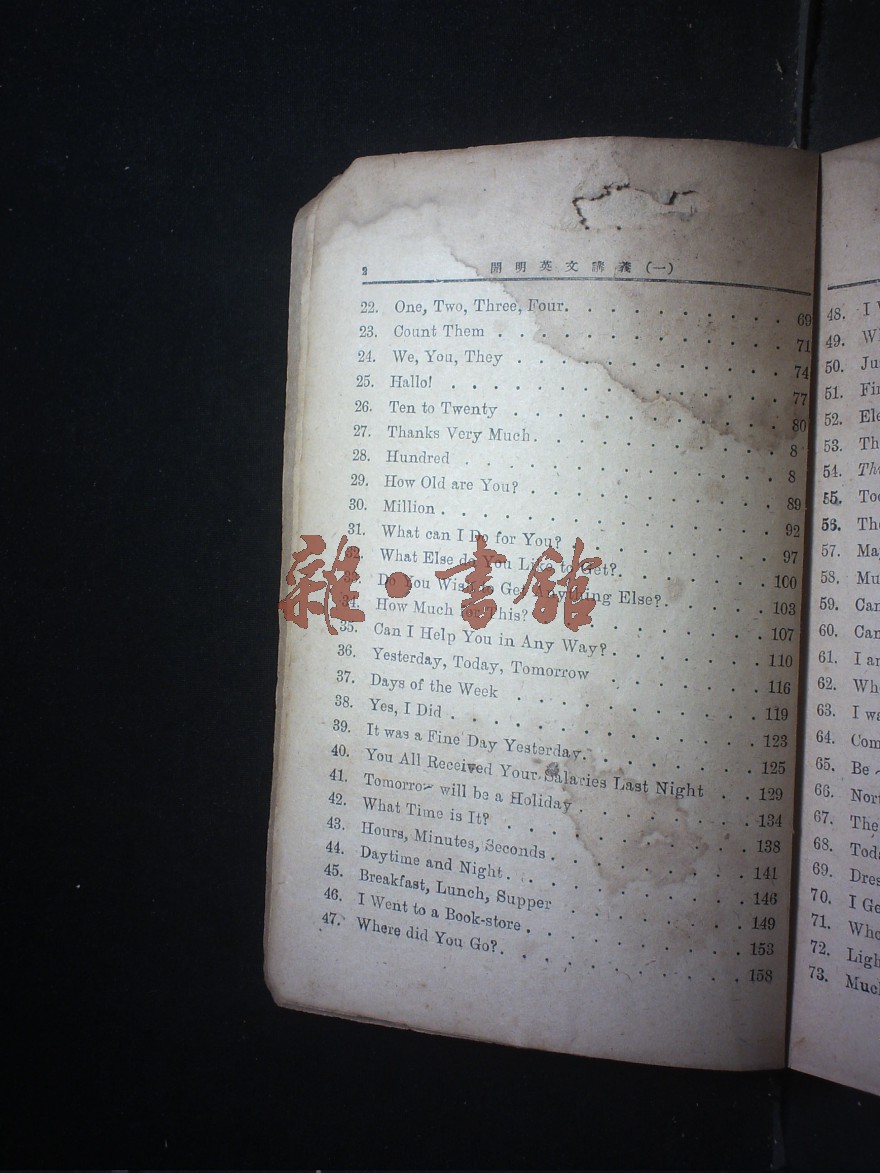 2 開明英文講義(一)
22. One, Two, Three, Four. 69
23. Count Them 71
24. We, You, They 74
25. Hallo! 77
26. Ten to Twenty 80
27. Thanks Very Much. 8
28. Hundred 8
29. How Old are You? 89
30. Million 92
31. What can I Do for You? 97
32. What Else do You Like to Get? 100
33. Do You Wish to Get Anything Else? 103
34. How Much for This? 107
35. Can I Help You in Any Way? 110
36. Yesterday, Today, Tomorrow 116
37. Days of the Week 119
38. Yes, I Did 123
39. It was a Fine Day Yesterday. 125
40. You All Received Your Salaries Last Night 129
41. Tomorrow will be a Holiday 134
42. What Time is It? 138
43. Hours, Minutes, Seconds 141
44. Daytime and Night. 146
45. Breakfast, Lunch, Supper 149
46. I Went to a Book-store 153
47. Where did You Go? 158
雜·書館
48. I
49.
50.
51.
52.
53.
54.
55.
56.
57.
58.
59.
60.
61. I
62.
63. I
64.
65. Be
66.
67. The
68.
69.
70. I
71.
72.
73.